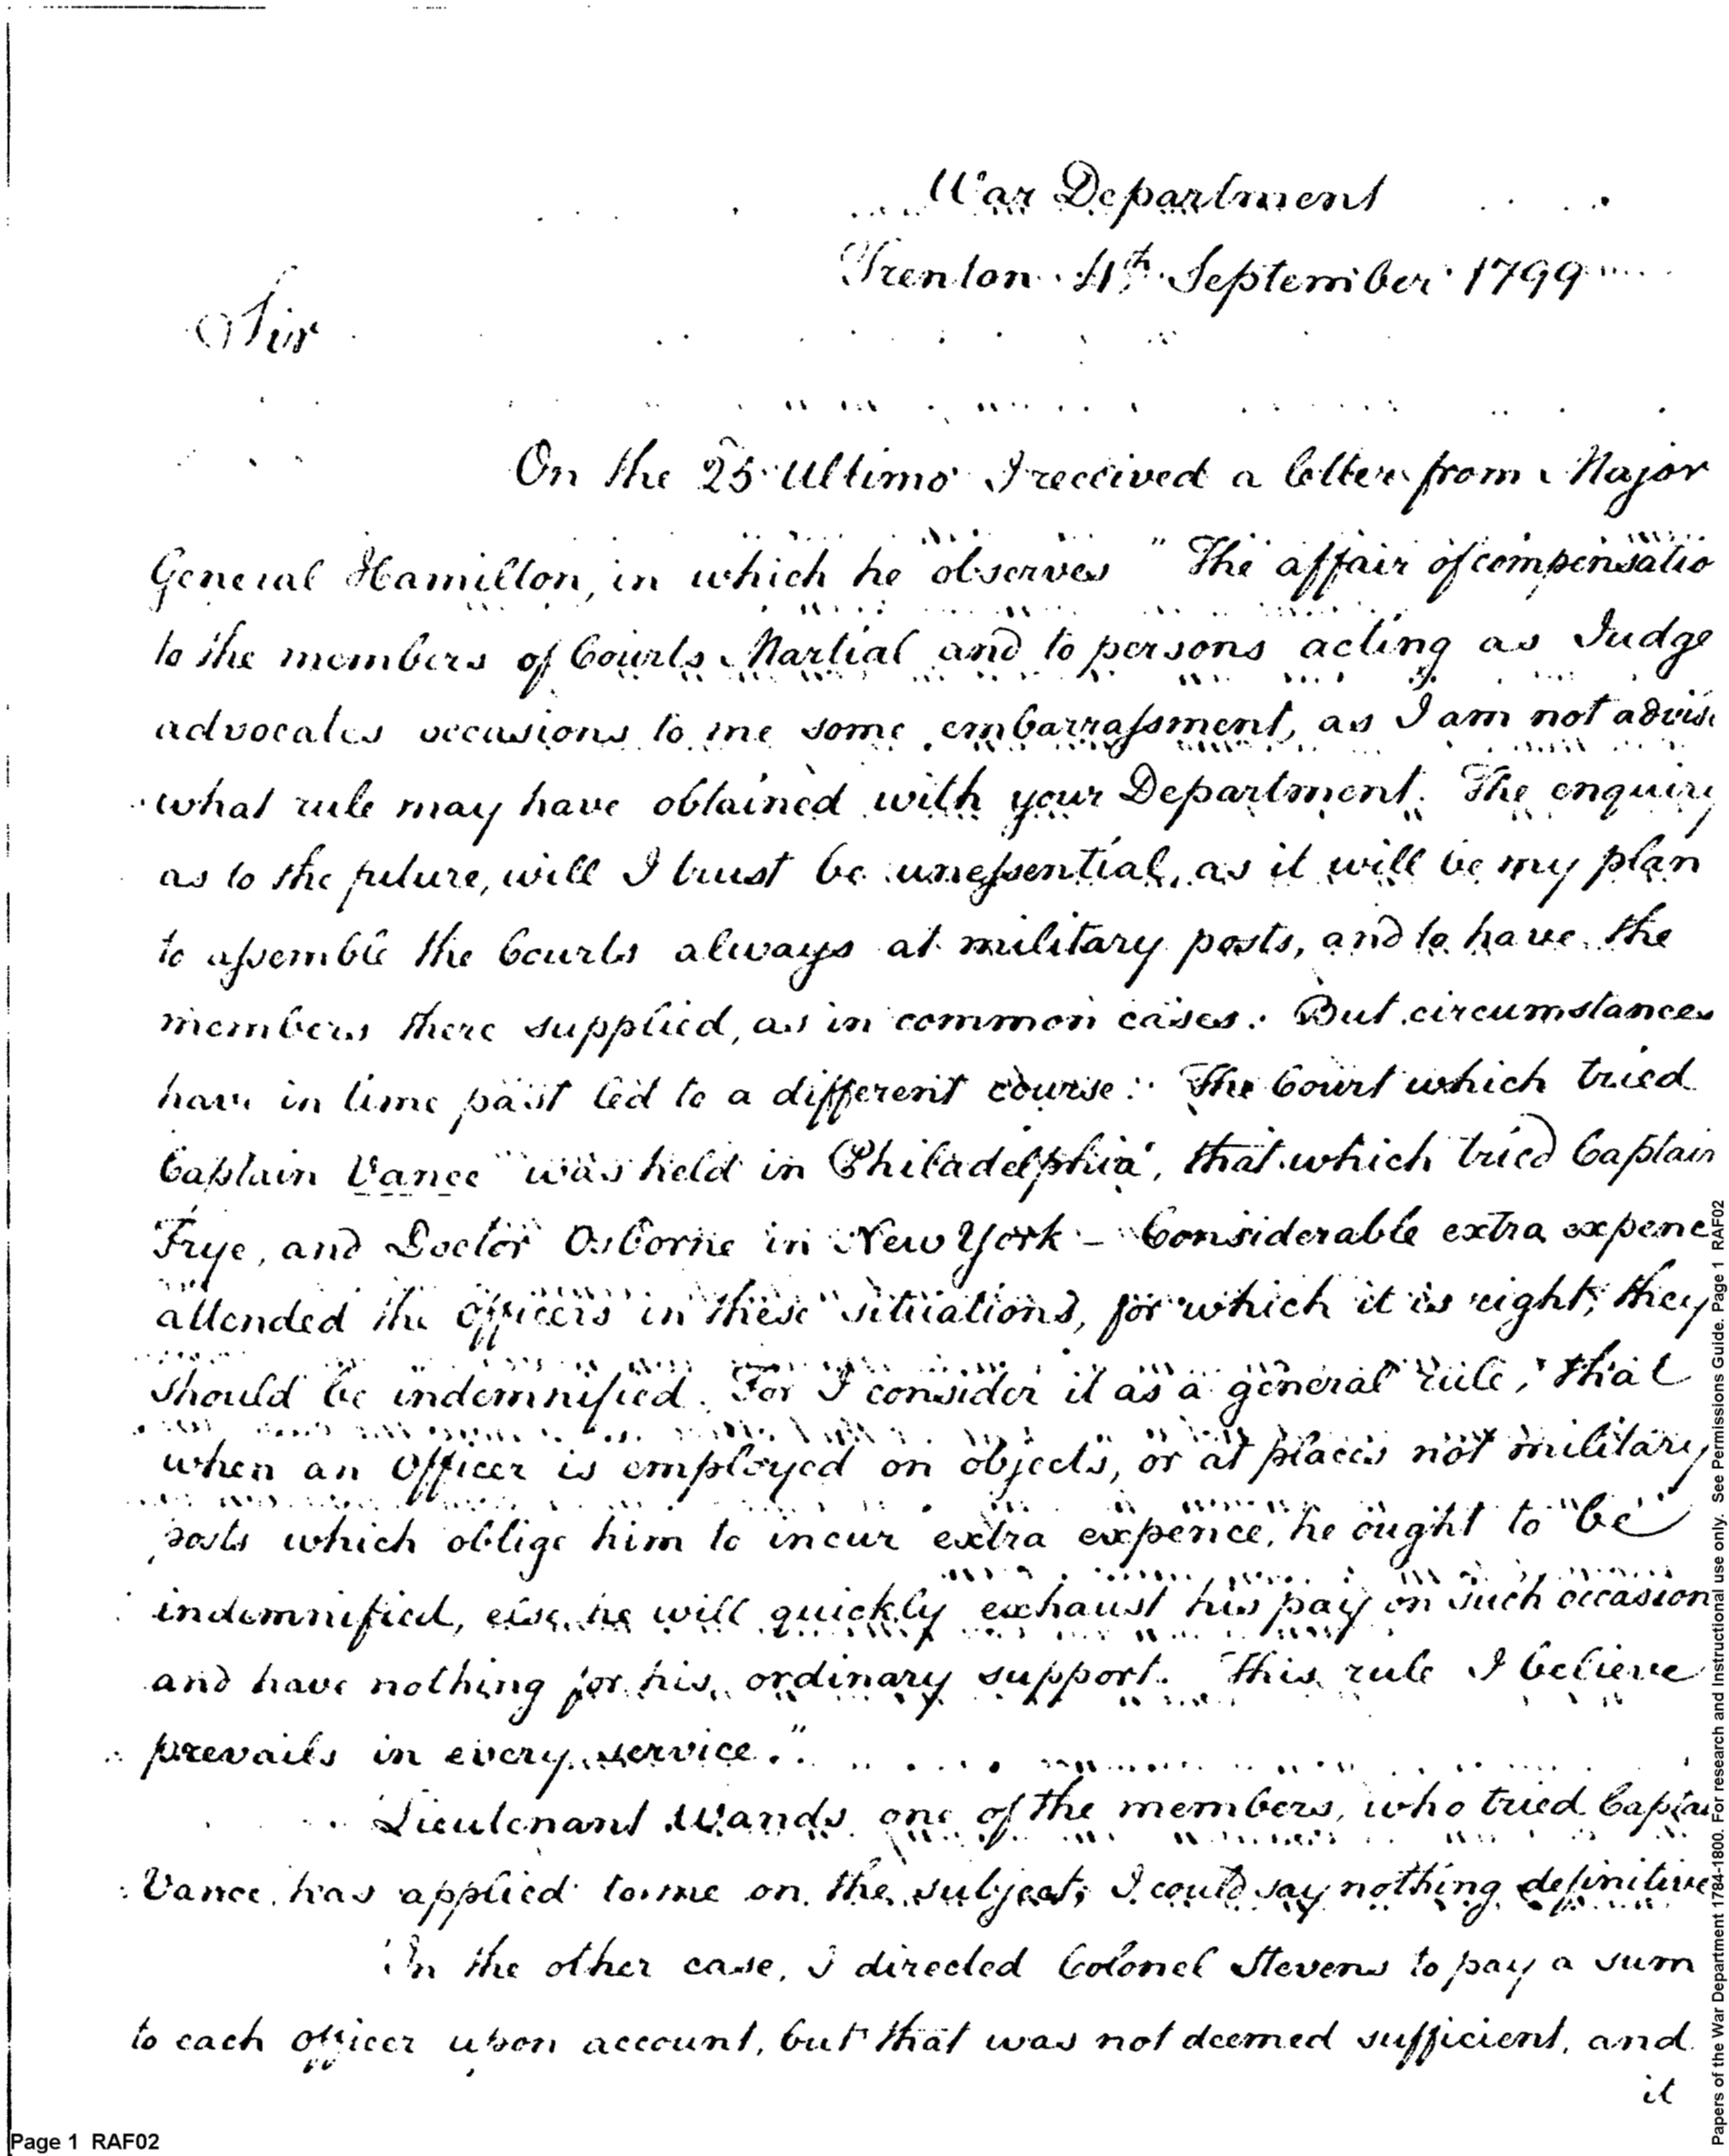 War Department
Trenton 4th September 1799
Sir
On the 25 Ultimo I received a letter from Major
General Hamilton, in which he observes "The affair of compensatio
to the members of Courts Martial and to persons acting as Judge
advocates occasions to me some embarrassment, as I am not advise
what rule may have obtained with your Department. The enquiry
as to the future, will I trust be unessential, as it will be my plan
to assemble the Courts always at military posts, and to have the
members there supplied, as in common cases. But circumstances
have in time past led to a different course. The Court which tried
Captain Vance was held in Philadelphia, that which tried Captain
Frye, and Doctor Osborne in New York - Considerable extra expence
attended the officers in these situations, for which it is right, they
should be indemnified. For I consider it as a general rule, that
when an Officer is employed on objects, or at places not military
posts which oblige him to incur extra expence, he ought to be
indemnified, else he will quickly exhaust his pay on such occasion
and have nothing for his ordinary support. This rule I believe
prevails in every service."
Lieutenant Wands one of the members, who tried Captai
Vance has applied to me on the subject; I could say nothing definitive
In the other case, I directed Colonel Stevens to pay a sum
to each officer upon account, but that was not deemed sufficient, and
it
Page 1 RAF02
Papers of the War Department 1784-1800. For research and Instructional use only. See Permissions Guide. Page 1 RAF02